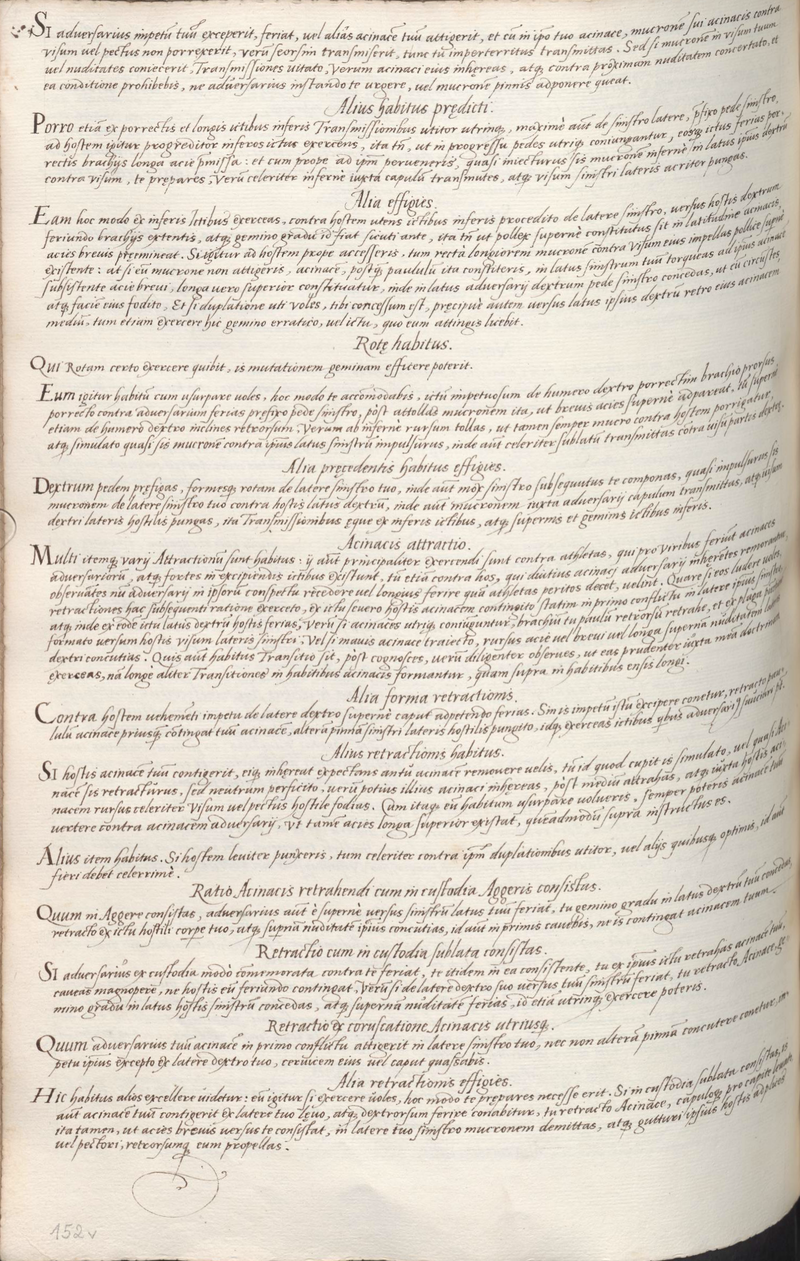 Si adversarius impetū tuū exceperit, feriat, vel aliàs acinacē tuū attigerit, et cū in ipo tuo acinace, mucronē sui acinacis contra
visum vel pectus non porrexerit, verū seorsim transmiserit, tunc tū imperterritus transmittas. Sed si mucronē in visum tuum
vel nuditates coniecerit, Transmissiones vitato, verum acinaci eius inhereas, atq; contra proximam nuditatem concertato, et
ea conditione prohibebis, ne adversarius instando te urgere, vel mucronē pinnis adponere queat.
Alius habitus prędicti.
Porro etiā ex porrectis et longis ictibus inferis Transmissionibus utitor utrinq;, maximè aūt de sinistro latere, pfixo pede sinistro,
ad hostem igitur progreditor inferos ictus exercens, ita tn, ut in progressu pedes utriq; coniungantur, eosq; ictus ferias por-
rectis brachijs longa acie pmissa: et cum prope ad ipm perveneris, quasi iniecturus sis mucronē infernè in latus ipius dextrū
contra visum, te prępares, Verū celeriter infernè iuxta capulū transmutes, atq; visum sinistri lateris acriter pungas.
Alia effigies.
Eam hoc modo ex inferis Ictibus exerceas, contra hostem utens ictibus inferis procedito de latere sinistro, versus hostis dextrum
feriundo brachijs extentis, atq; gemino gradu id fiat sicuti ante, ita tn ut pollex supernè constitutus sit in latitudine acinacis,
acies brevis pręmineat. Si igitur ad hostem prope accesseris, tum rectà longiorem mucronē contra Visum eius impellas pollice supnè
existente: at si eū mucrone non attigeris, acinacē, postq; paululū ita constiteris, in latus sinistrum tuū torqueas ad ipius acinacē
subsistente acie brevi, longa vero superior constituatur, inde in latus adversarij dextrum pede sinistro concedas, ut eū circuites,
atq; facie eius fodito, Et si duplatione uti voles, tibi concessum est, pręcipuè autem versus latus ipsius dextrū retro eius acinacem
mediū, tum etiam exercere hic gemino erratico, vel ictu, quo eum attingis licebit.
Rotę habitus.
Qui Rotam certo exercere quibit, is mutationem geminam efficere poterit.
Eum igitur habitū cum usurpare voles, hoc modo te accōmodabis, ictū impetuosum de humero dextro porrectim brachio prorsus
porrecto contra adversarium ferias prefixo pede sinistro, pòst attollas mucronem ita, ut brevis acies supernè adpareat, id supernè
etiam de humero dextro inclines retrorsum. Verum ab infernè rursum tollas, ut tamen semper mucro contra hostem porrigatur,
atq; simulato quasi sis mucronē contra ipius latus sinistrū impulsurus, inde aūt celeriter sublatū transmittas cōtra visū partis dextrę.
Alia pręcedentis habitus effigies.
Dextrum pedem pręfigas, formesq; rotam de latere sinistro tuo, inde aūt mox sinistro subsequutus te componas, quasi impulsurus sis
mucronem de latere sinistro tuo contra hostis latus dextrū, inde aūt mucronem iuxta adversarij capulum transmittas, atq; visum
dextri lateris hostilis pungas, ita Transmissionibus ęque ex inferis ictibus, atq; supernis et geminis ictibus inferis.
Acinacis attractio.
Multi itemq; varij Attractionū sunt habitus: ij aūt principaliter exercendi sunt contra athletas, qui pro viribus feriūt acinaces
adversariorū, atq; fortes in excipiendis ictibus existunt, tū etiā contra hos, qui diutius acinaci adversarij inherētes remorantur,
observātes nū adversarij in ipsorū conspectu recedere vel longius ferire quā athletas peritos decet, velint. Quare si eos ludere voles,
retractiones hac subsequenti ratione exerceto, ex ictu severo hostis acinacem contingito statim in primo conflictu in latere ipius sinistro
atq; inde ex eodē ictu latus dextrū hostis ferias, Verū si acinaces utriq; coniungūtur, brachiū tū paulū retrorsū retrahe, et ex plaga pinnā
formato versum hostis visum lateris sinistri. Vel si mavis acinacē traiecto, rursus aciē vel brevi vel longa supernā nuditatem lateris
dextri concutias. Quis aūt habitus Transitio sit, pòst cognosces, verū diligenter observes, ut eas prudenter iuxta mea doctrinā
exerceas, nā longe aliter Transitiones in habitibus acinacis formantur, quam supra in habitibus ensis longi.
Alia forma retractionis.
Contra hostem vehemēti impetu de latere dextro supernè caput adpetendo ferias. Sin is impetū istū excipere conetur, retracto pau-
lulū acinace priusq; cōtingat tuū acinacē, alterā pinnā sinistri lateris hostilis pungito, idq; exerceas ictibus
Alius retractionis habitus.
Si hostis acinacē tuū contigerit, eiq; inhereat expectans antū acinacē removere velis, tū id quod cupit is simulato, vel quasi Aci-
nacē sis retracturus, sed neutrum perficito, verū potius illius acinaci inhereas, pòst mediū attrahas, atq; iuxta hostis aci-
nacem rursus celeriter visum vel pectus hostile fodias. Cùm itaq; eū habitum usurpare volueris, semper poteris acinacē tuū
vertere contra acinacem adversarij, ut tamē acies longa superior existat, quēadmodū supra instructus es.
Alius item habitus. Si hostem leviter punxeris, tum celeriter contra ipm duplationibus utitor, vel alijs quibusq; optimis, id aūt
fieri debet celerrimè.
Ratio Acinacis retrahendi cum in custodia Aggeris consistas.
Quum in Aggere consistas, adversarius aūt è supernè versus sinistrū latus tuū feriat, tu gemino gradu in latus dextrū tuū concedas,
retracto ex ictu hostili corpe tuo, atq; supnā nuditatē ipius concutias, id aūt in primis cavebis, ne is contingat acinacem tuum.
Retractio cum in custodia sublata consistas.
Si adversarius ex custodia modò cōmemorata contra te feriat, te itidem in ea consistente, tu ex ipius ictu retrahas acinacē tuū,
caveas magnopere, ne hostis eū feriundo contingat. Verū si de latere dextro suo versus tuū sinistrū feriat, tu retracto Acinace ge-
mino gradu in latus hostis sinistrū concedas, atq; supernam nuditatē ferias, id etiā utrinq; exercere poteris.
Retractio ex coruscatione Acinacis utriusq;.
Quum adversarius tuū acinacē in primo conflictu attigerit in latere sinistro tuo, nec non alterā pinnā concutere conetur, im-
petu ipius excepto ex latere dextro tuo, cervicem eius vel caput quassabis.
Alia retractionis effigies.
Hic habitus alios excellere videtur: eū igitur si exercere voles, hoc modo te prępares necesse erit. Si in custodia sublata consistas, is
aūt acinacē tuū contigerit ex latere tuo lęvo, atq; dextrorsum ferire conabitur, tu retracto Acinace, capuloq; pro capite
ita tamen, ut acies brevis versus te consistat, in latere tuo sinistro mucronem demittas, atq; gutturi ipsius hostis adplices
vel pectori, retrorsumq; eum propellas.
152v